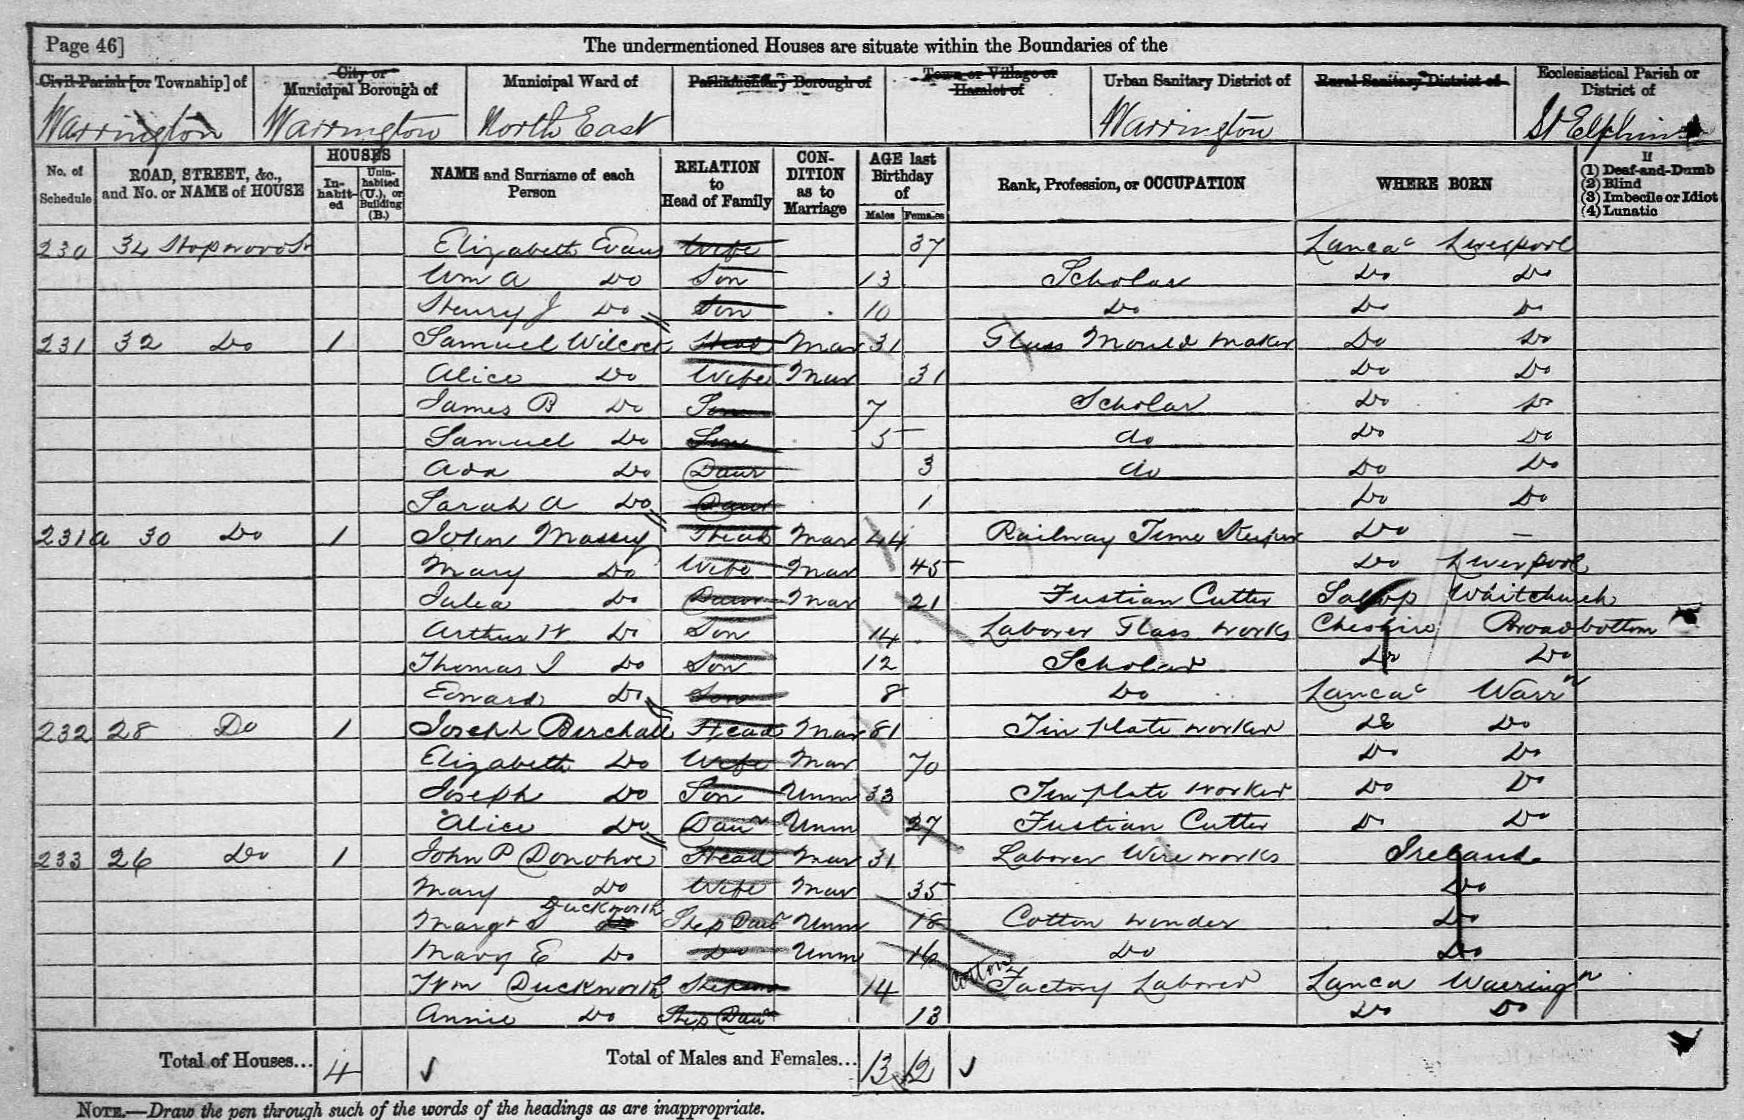 Page 46]
The undermentioned Houses are situate within the Boundaries of the
Civil Parish [or Township] of City or Municipal Borough of Municipal Ward of Parliamentary Borough of Town or Village or Hamlet of Urban Sanitary District of Rural Sanitary District of Ecclesiastical Parish or District of
Warrington Warrington North East Warrington St Elphins
No. of Schedule ROAD, STREET, &c., and No. or NAME of HOUSE HOUSES Inhabited Uninhabited (U.), or Building (B.) NAME and Surname of each Person RELATION to Head of Family CONDITION as to Marriage AGE last Birthday of Males Females Rank, Profession, or OCCUPATION WHERE BORN If (1) Deaf-and-Dumb (2) Blind (3) Imbecile or Idiot (4) Lunatic
230 34 Elizabeth Evans Wife 37 Lancac Liverpool
Wm A Do Son 13 Scholar Do Do
Henry J Do Son 10 Do Do Do
231 32 Do 1 Samuel Wilcock Head Mar 31 Glass Mould maker Do Do
Alice Do Wife Mar 31 Do Do
James B Do Son 7 Scholar Do Do
Samuel Do Son 5 do Do Do
Ada Do Daur 3 do Do Do
Sarah A Do Daur 1 Do Do
231a 30 Do 1 John Massey Head Mar 44 Railway Time Keeper Do —
Mary Do Wife Mar 45 Do Liverpool
Julia Do Daur Mar 21 Fustian Cutter Salop Whitchurch
Arthur W Do Son 14 Laborer Glass works Cheshire Broadbottom
Thomas J Do Son 12 Scholar Do Do
Edward Do Son 8 Do Lancac Warrn
232 28 Do 1 Joseph Birchall Head Mar 81 Tin plate worker Do Do
Elizabeth Do Wife Mar 70 Do Do
Joseph Do Son Unm 33 Tin plate worker Do Do
Alice Do Daur Unm 27 Fustian Cutter Do Do
233 26 Do 1 John P Donohoe Head Mar 31 Laborer Wire works Ireland
Mary Do Wife Mar 35 Do
Margt J Duckworth Step Daur Unm 18 Cotton winder Do
Mary E Do Do Unm 16 Do Do
Wm Duckworth Stepson 14 Cotton Factory Laborer Lanca Warringn
Annie Do Step Daur 13 Do Do
Total of Houses... 4 Total of Males and Females... 13 12
NOTE.—Draw the pen through such of the words of the headings as are inappropriate.